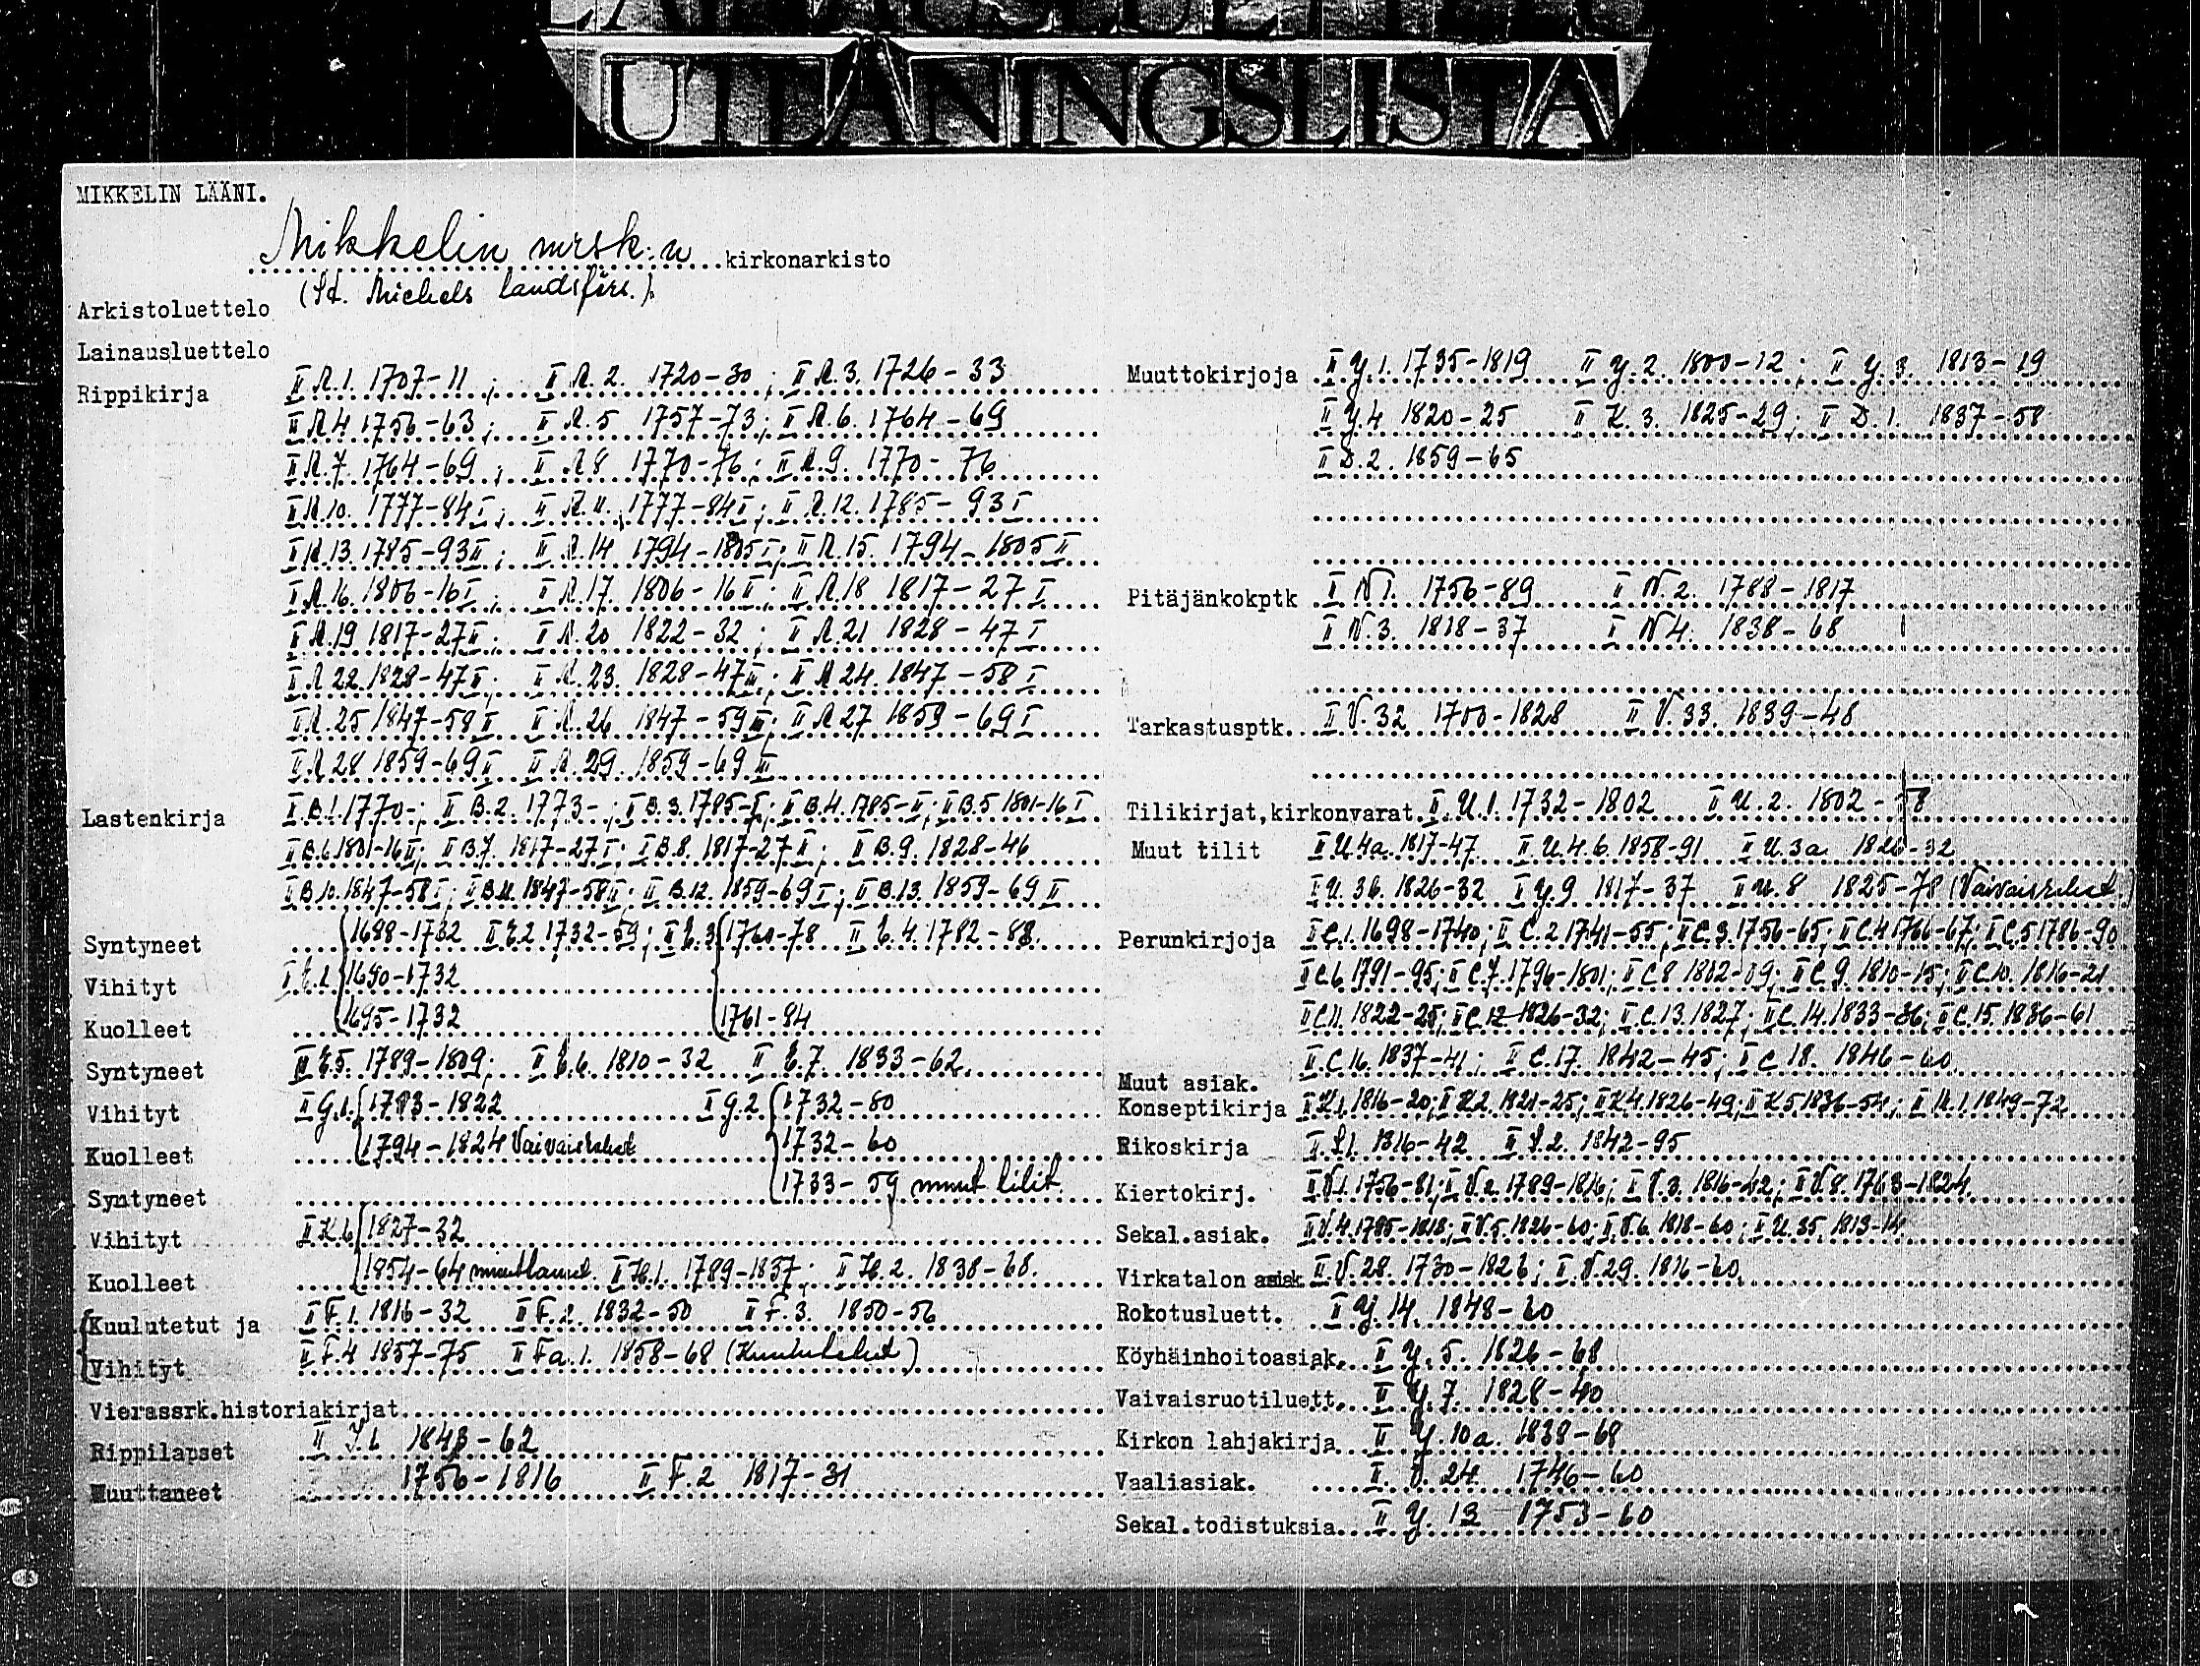 UTLÅNINGSLISTA
MIKKELIN LÄÄNI.
Mikkelin mrsk:n kirkonarkisto
(St. Michels landsförs.)
Arkistoluettelo
Lainausluettelo
Rippikirja II R.1. 1707-11; II R.2. 1720-30; II R.3. 1726-33
II R.4 1756-63; II R.5 1757-73; II R.6. 1764-69
II R.7. 1764-69; II R.8 1770-76; II R.9. 1770-76
II R.10. 1777-84 I; II R.11. 1777-84 I; II R.12. 1785-93 I
II R.13 1785-93 II; II R.14 1794-1805 I; II R.15. 1794-1805 II
II R.16. 1806-16 I; II R.17. 1806-16 II; II R.18 1817-27 I
II R.19 1817-27 II; II R.20 1822-32; II R.21 1828-47 I
II R.22. 1828-47 II; II R.23. 1828-47 III; II R.24. 1847-58 I
II R.25 1847-58 II II R.26 1847-59 III; II R.27 1859-69 I
II R.28 1859-69 II II R.29. 1859-69 III
Lastenkirja II B.1. 1770-; II B.2. 1773-; II B.3. 1785-I; II B.4. 1785-II; II B.5 1801-16 I
II B.6. 1801-16 II; II B.7. 1817-27 I; II B.8. 1817-27 II; II B.9. 1828-46
II B.10. 1847-58 I; II B.11. 1847-58 II; II B.12. 1859-69 I; II B.13. 1859-69 II
Syntyneet 1688-1732 II E.2 1732-59; II E.3 1760-78 II E.4. 1782-88.
Vihityt II E.1. 1690-1732
Kuolleet 1695-1732 1761-84
Syntyneet II E.5. 1789-1809; II E.6. 1810-32 II E.7. 1833-62.
Vihityt II G.1. 1793-1822 II G.2. 1732-80
Kuolleet 1794-1824 Vaivaisrahat 1732-60
Syntyneet 1733-59 muut tilit
Vihityt II K.6 1827-32
Kuolleet 1854-64 muuttaneet. II H.1. 1789-1837; II H.2. 1838-68.
Kuulutetut ja II F.1. 1816-32 II F.2. 1832-50 II F.3. 1850-56
Vihityt II F.4 1857-75 II Fa.1. 1858-68 (Kuulutukset)
Vierassrk.historiakirjat
Rippilapset II J.1. 1843-62
Muuttaneet 1756-1816 II F.2 1817-31
Muuttokirjoja II Y.1. 1735-1819 II Y.2. 1800-12; II Y.3. 1813-19
II Y.4 1820-25 II K.3. 1825-29; II D.1. 1837-58
II D.2. 1859-65
Pitäjänkokptk II N 1. 1756-89 II N.2. 1788-1817
II N.3. 1818-37 II N 4. 1838-68
Tarkastusptk. II V.32 1700-1828 II V.33. 1839-48
Tilikirjat,kirkonvarat II U.1. 1732-1802 II U.2. 1802-
Muut tilit II U.4a. 1817-47 II U.4.b. 1858-91 II U.3a 1826-32
II U.3b. 1826-32 II Y.9 1817-37 II U.8 1825-78 (Vaivaisrahat)
Perunkirjoja II C.1. 1698-1740; II C.2 1741-55; II C.3. 1756-65; II C.4 1766-67; II C.5 1786-90
II C.6 1791-95; II C.7. 1796-1801; II C.8 1802-09; II C.9. 1810-15; II C.10. 1816-21
II C.11. 1822-25; II C.12 1826-32; II C.13. 1827; II C.14. 1833-36; II C.15. 1836-61
II C.16. 1837-41; II C.17. 1842-45; II C 18. 1846-60
Muut asiak.
Konseptikirja II K.1. 1816-20; II K.2. 1821-25; II K.4. 1826-49; II K.5 1836-54; II M.1. 1849-72
Rikoskirja II L.1. 1816-42 II L.2. 1842-95
Kiertokirj. II V.1. 1756-81; II V.2. 1789-1816; II V.3. 1816-42; II V.8. 1763-1824
Sekal.asiak. II V.4. 1785-1818; II V.5. 1826-60; II V.6. 1818-60; II U.35. 1813-14
Virkatalon asiak II V.28. 1730-1826; II V.29. 1816-60.
Rokotusluett. II Y.14. 1848-60
Köyhäinhoitoasiak. II Y.5. 1826-68
Vaivaisruotiluett. II Y.7. 1828-40
Kirkon lahjakirja II Y.10a. 1838-68
Vaaliasiak. II V.24. 1746-60
Sekal.todistuksia II Y.13 1753-60